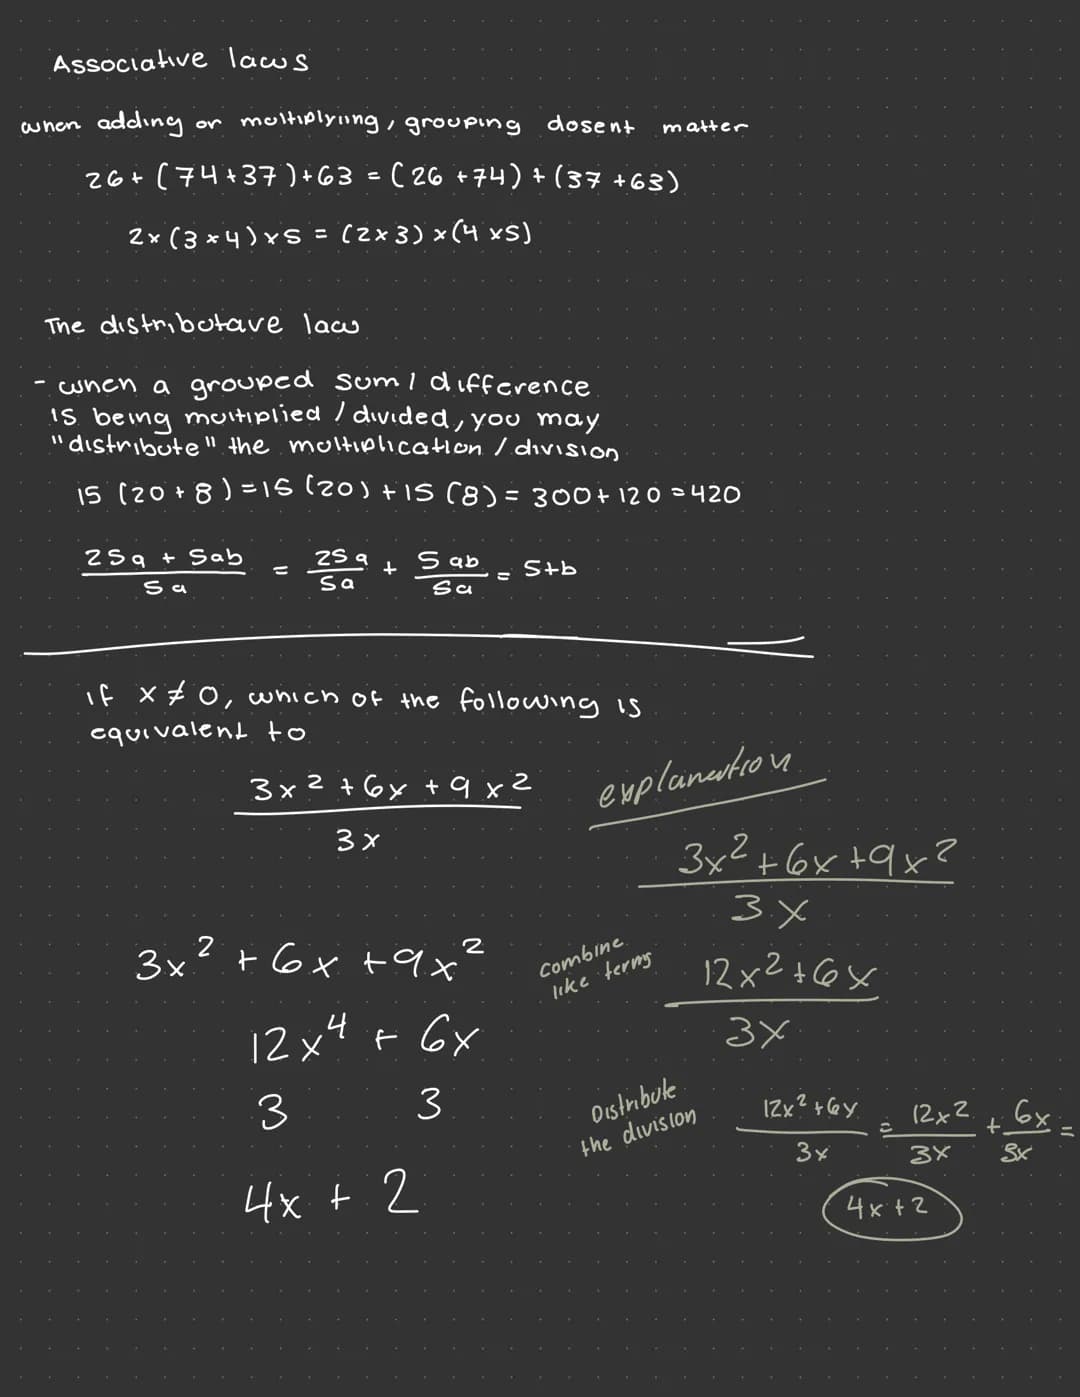 Associative laws
when adding or multiplying, grouping dosent matter
26+(74+37)+63 = (26+74)+(37+63)
2×(3×4)×5 = (2×3)×(4×5)
The distributave law
- when a grouped sum / difference
is being multiplied / divided, you may
"distribute" the multiplication / division
15 (20+8) = 15 (20) + 15 (8) = 300 + 120 = 420
25a + 5ab / 5a = 25a / 5a + 5ab / 5a = 5+b
if x ≠ 0, which of the following is
equivalent to
3x² + 6x + 9x²
3x
3x² + 6x + 9x²
12x⁴ + 6x
3 3
4x + 2
explanation
3x² + 6x + 9x²
3x
combine
like terms
12x² + 6x
3x
Distribute
the division
12x² + 6x / 3x = 12x² / 3x + 6x / 3x =
4x + 2